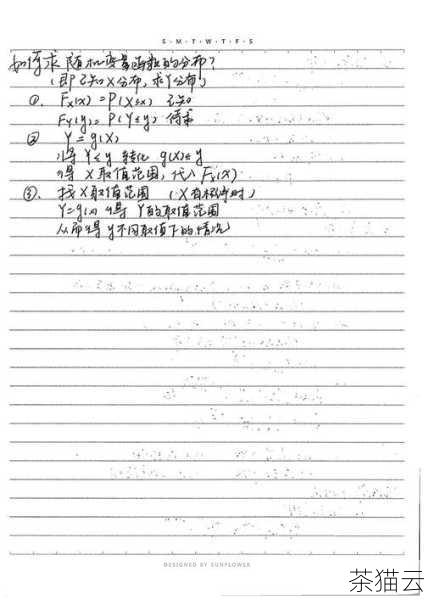 S·M·T·W·T·F·S
如何求随机变量函数的分布?
(即已知X分布,求Y分布)
①. Fx(x) = P(X≤x) 已知
Fy(y) = P(Y≤y) 待求
② Y = g(X)
将 Y≤y 转化 g(X)≤y
得 X取值范围,代入Fx(x)
③. 找X取值范围 (X有概率时)
Y=g(x) 得 Y的取值范围
从而得y不同取值下的情况
DESIGNED BY SUNFLOWER
茶猫云